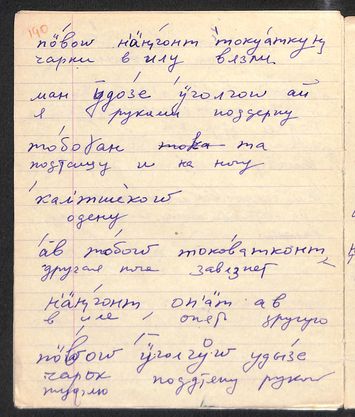 190
по́вом на́ӈгонт токуа́ткуӈ
чарки в илу вязли.
ман ӯдо́зе ӱ́голгом ай
я руками поддерну
то́боӷан та
подтащу и на ногу
калтше́когом
одену
а́в то́бом токо́ватконт
другая нога завязнет
на́ӈгонт оп'а́т ав
в иле опет другую
по́вом ӱ́голгом удызе
чарок поддтену рукой